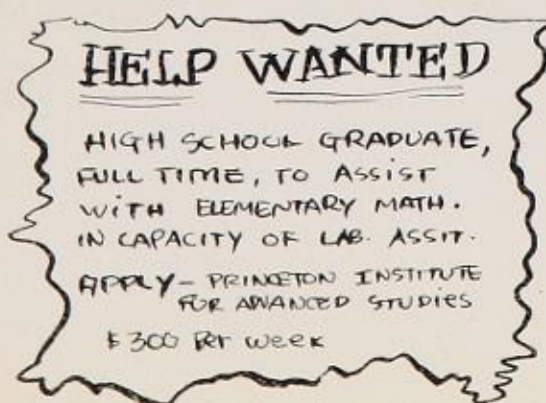 HELP WANTED
HIGH SCHOOL GRADUATE,
FULL TIME, TO ASSIST
WITH ELEMENTARY MATH.
IN CAPACITY OF LAB. ASSIT.
APPLY - PRINCETON INSTITUTE
FOR ADVANCED STUDIES
$300 Per week